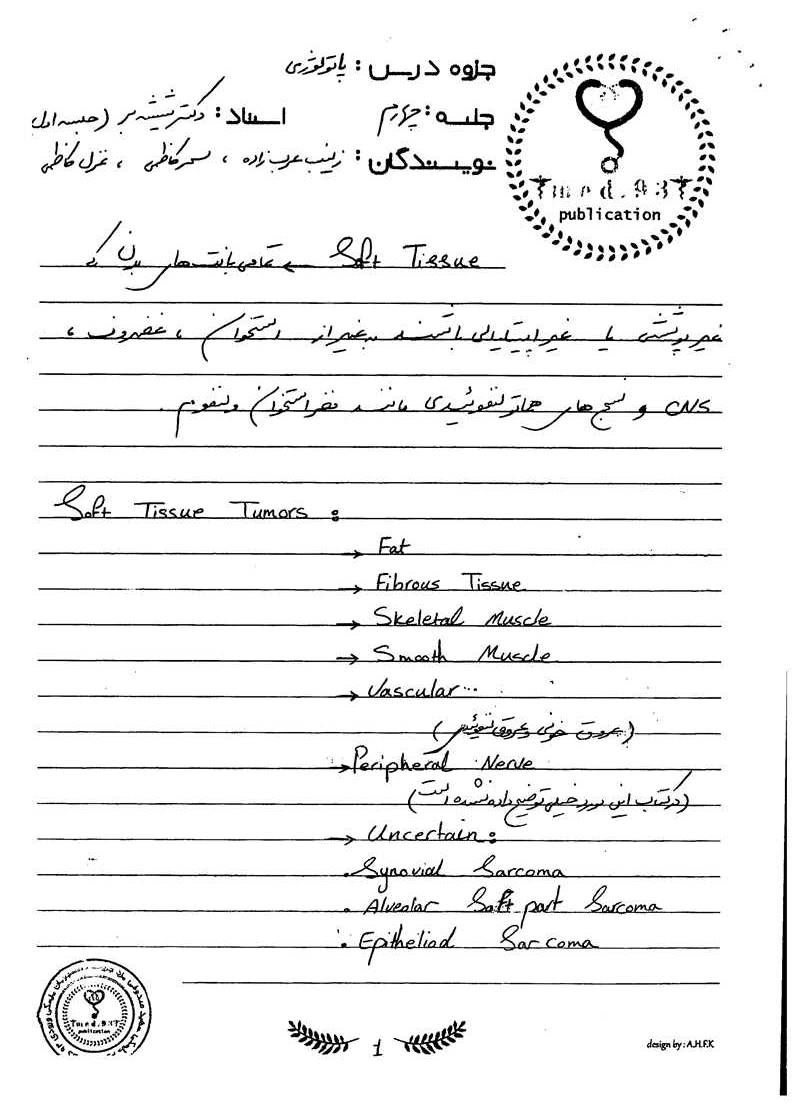 جزوه درس: پاتولوژی
جلسه: چهارم استاد: دکتر شمشیر (جلسه اول
نویسندگان: زینب عرب زاده ، سحر کاظمی ، غزل کاظمی
Tmed.93T
publication
Soft Tissue ← تمامی بافت های بدن که
غیر پوششی یا غیر اپیتلیالی باشند به غیر از استخوان ، غضروف ،
CNS و نسج های هماتولنفوئیدی مانند مغز استخوان و لنفوم.
Soft Tissue Tumors :
→ Fat
→ Fibrous Tissue
→ Skeletal Muscle
→ Smooth Muscle
→ Vascular...
(عروق خونی و عروق لنفوئیدی)
→ Peripheral Nerve
(در کتاب این مورد خیلی توضیح داده نشده است)
→ Uncertain :
. Synovial Sarcoma
. Alveolar Soft part Sarcoma
. Epitheliod Sarcoma
Tmed.93T
publication
1
design by : A.H.F.K